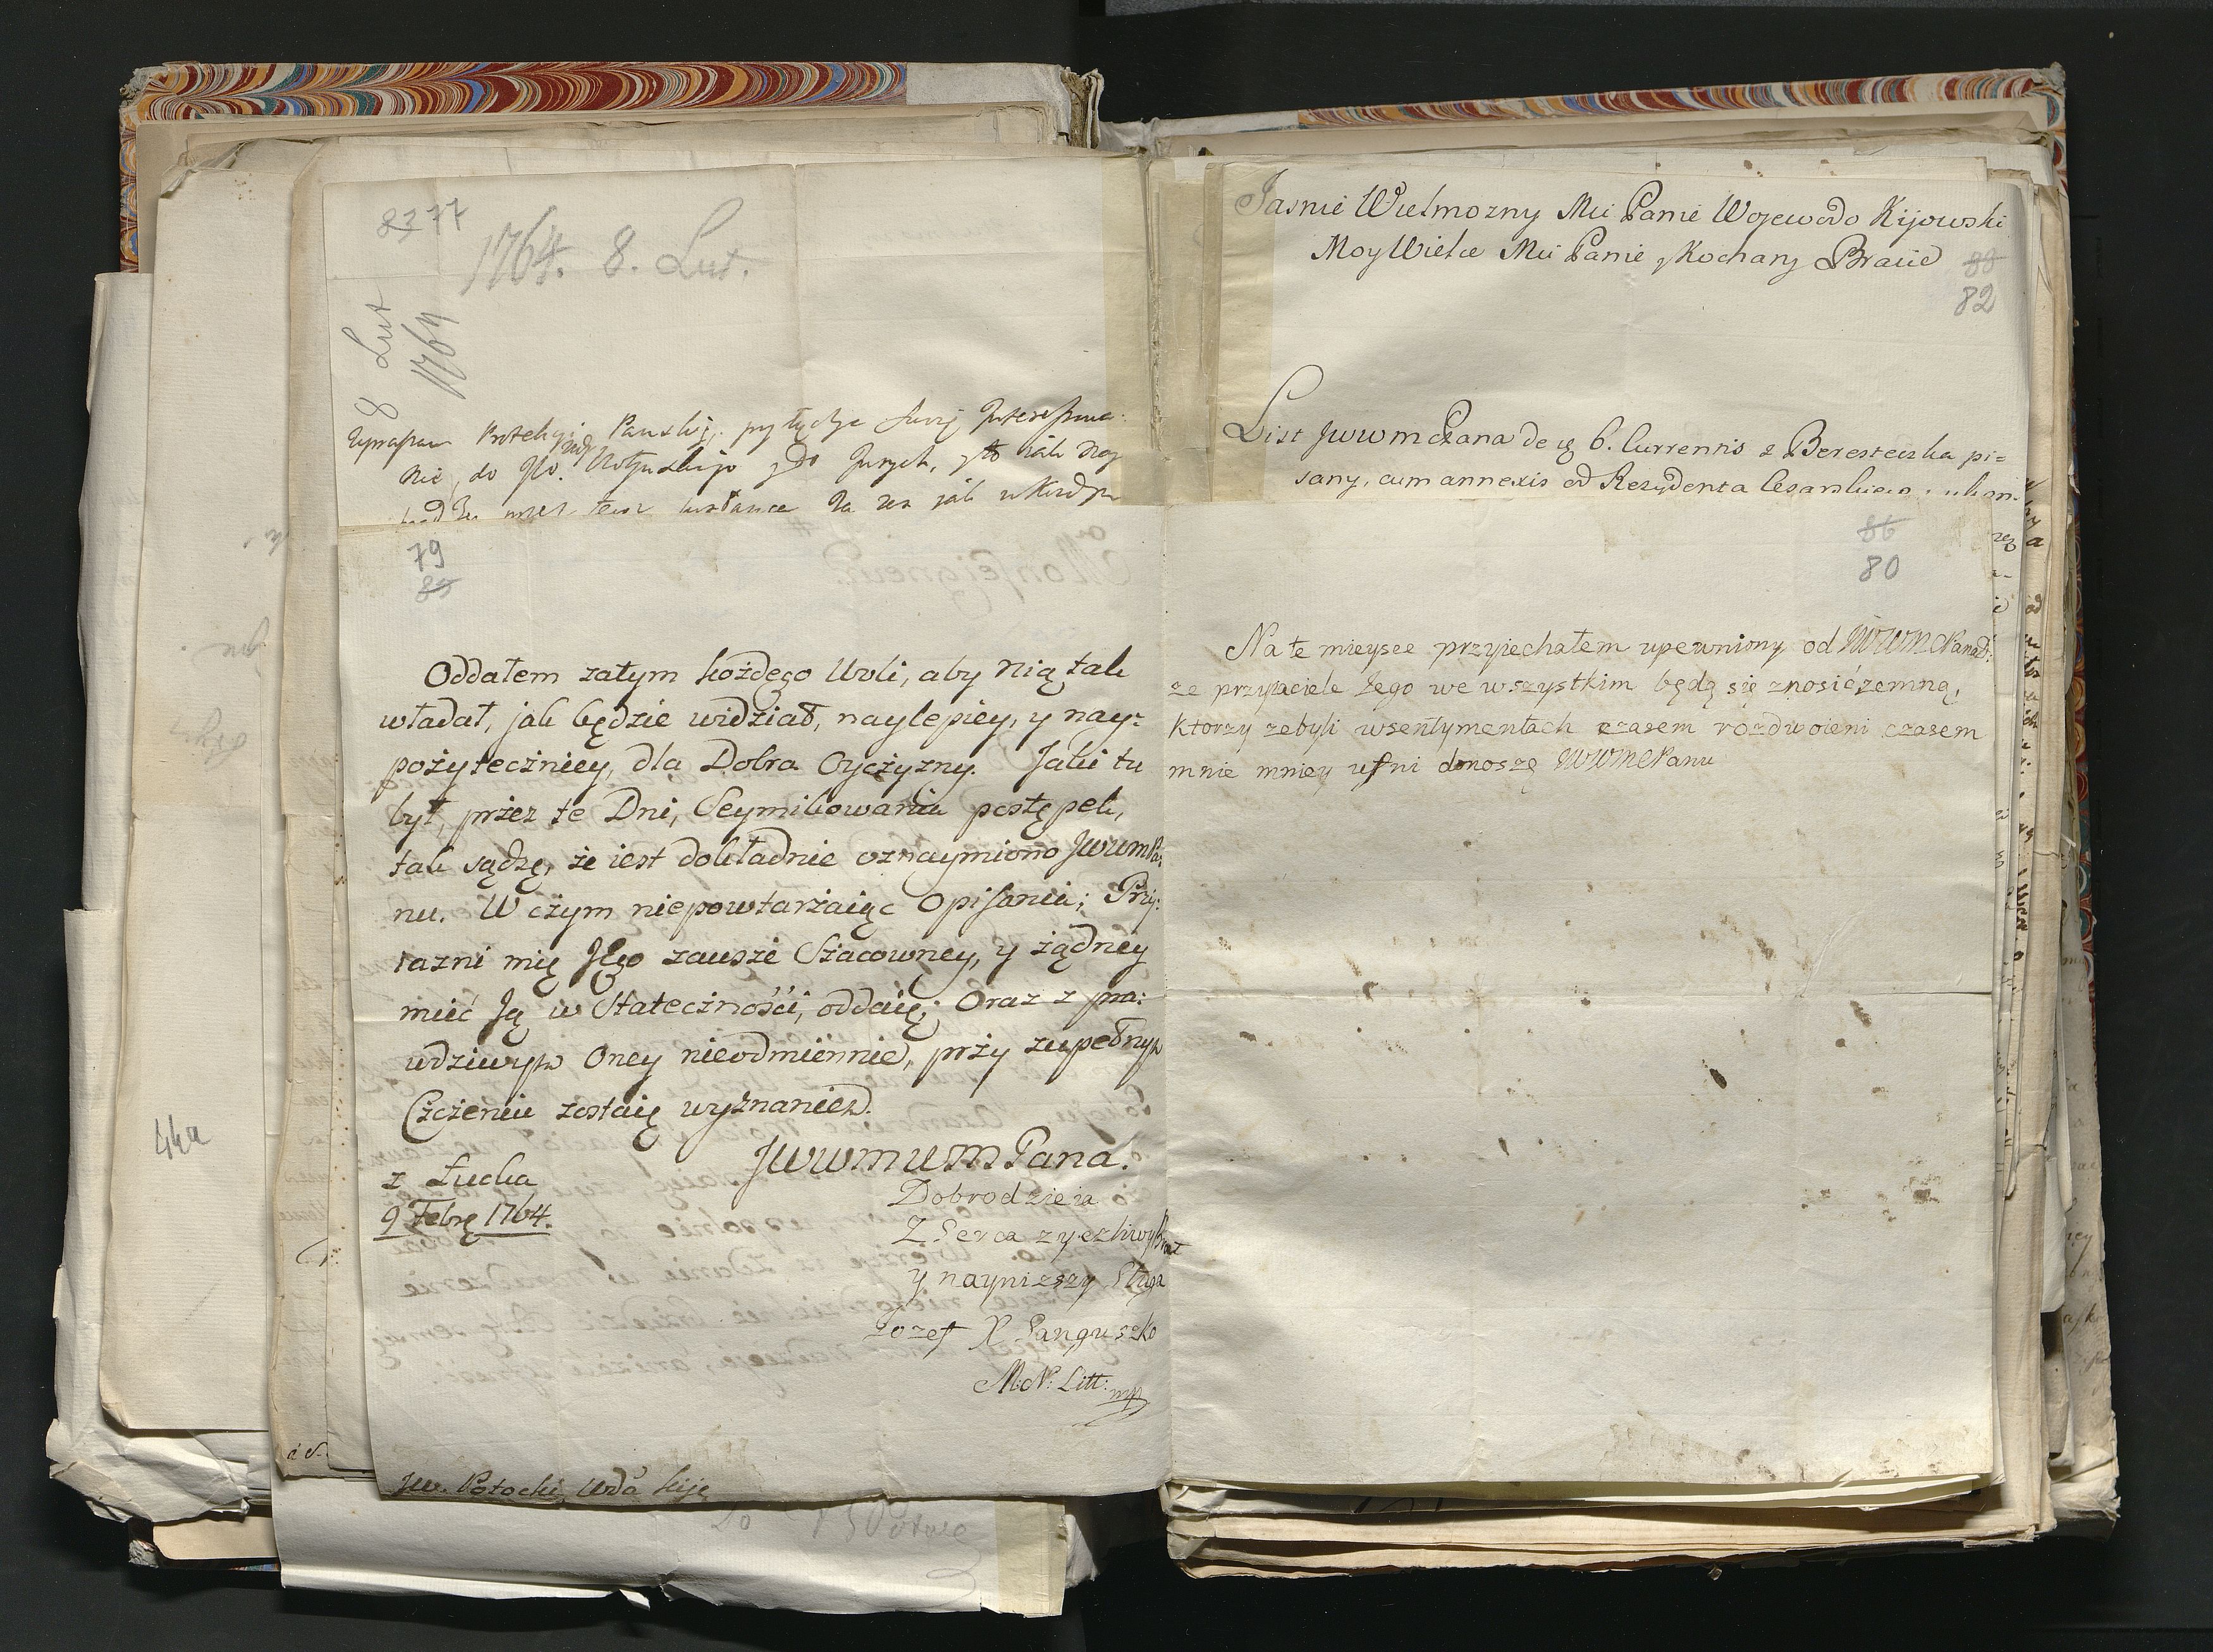 83 77
1764. 8. Lut.
8 Lut
1764
nie, do
79
85
Oddałem zatym każdego Woli, aby nią tak
władał, jak będzie widział, naylepiey, y nay:
pożyteczniey, dla Dobra Oyczyzny. Jaki tu
był, przez te Dni, Seymikowania postępek,
tak sądzę, że iest dokładnie oznaymiono JWWMPa:
nu. W czym niepowtarzaiąc Opisania; Przy:
iazni mię Jego zawsze Szacowney, y żądney
mieć Ją w Stateczności, oddaię; Oraz z pra:
wdziwym Oney nieodmiennie, przy zupełnym
Czczeniu zostaię wyznaniem.
JWWMWMPana.
Dobrodzieia
z Łucka
9 Febrę 1764.
Z Serca zyczliwy Brat
y naynizszy Sługa
Jozef X Sanguszko
M. N. Litt: mp
JW. Potocki, Wda Kijo
44a
Jasnie Wielmozny Mci Panie Woiewodo Kijowski
Moy Wielce Mci Panie y Kochany Bracie
88
82
List JWWMcPana de 6. Currentis z Beresteczka pi=
sany, cum annexis od Rezydenta Cesarskiego
86
80
Na te mieysce przyiechałem upewniony od JWWMCPanaD:
ze przyiaciele Jego we wszystkim będą się znosić zemną,
ktorzy zebyli wsentymentach czasem rozdwoieni czasem
mnie mniey ufni donoszę JWWMCPanu